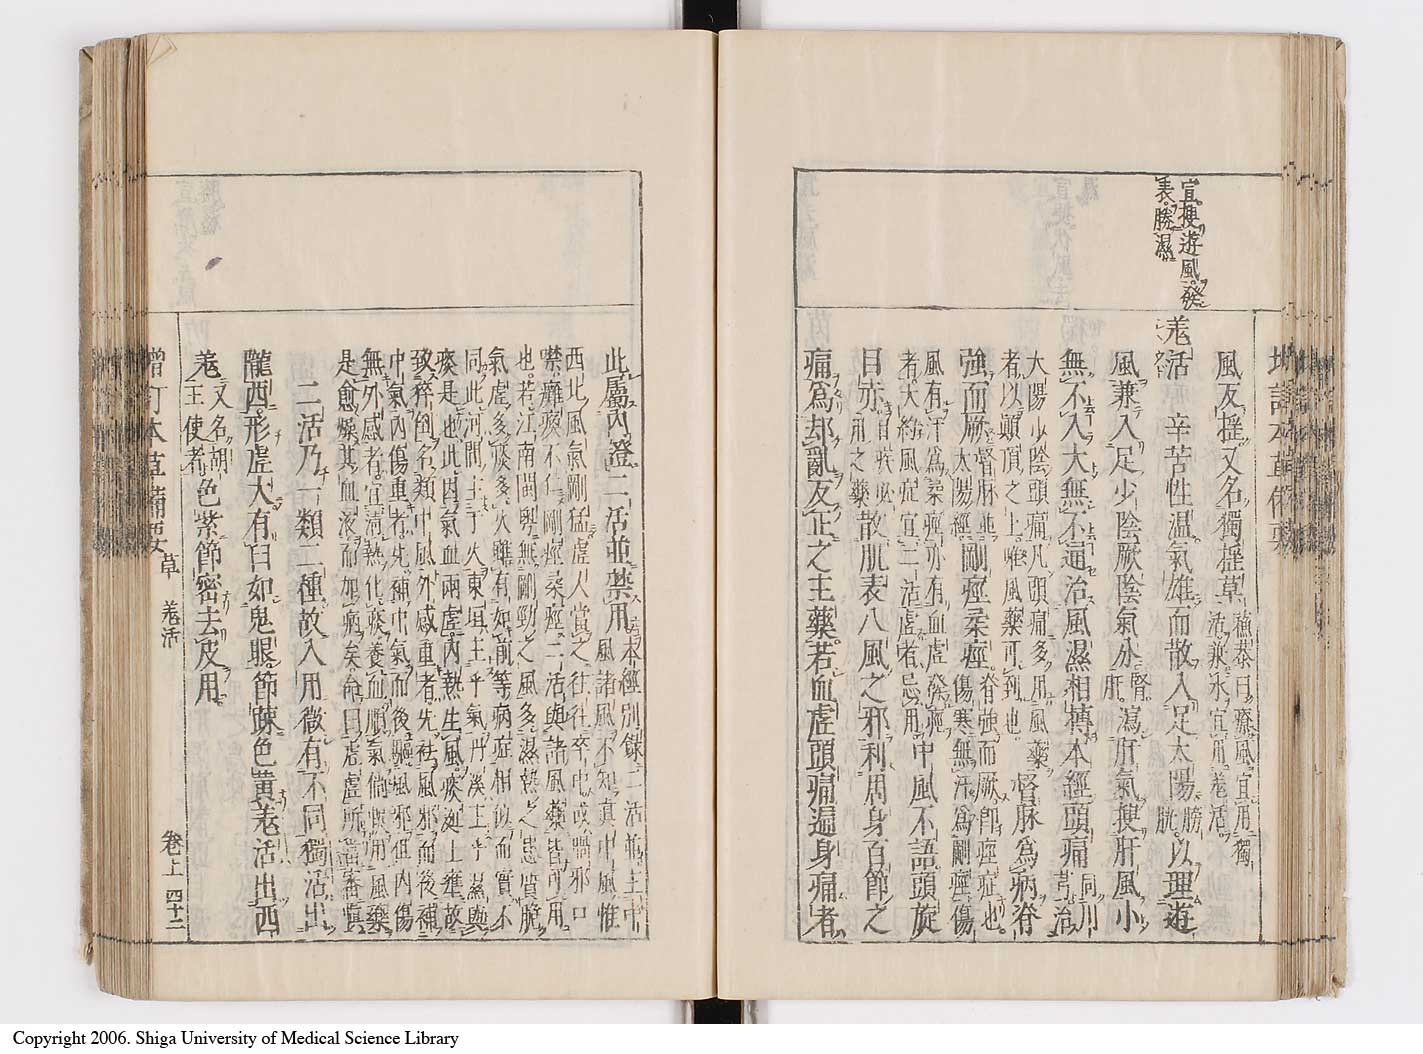 宣搜遊風發
表勝濕
増訂本草備要
風友搖又名獨搖草
羗活 辛苦性温氣雄而散入足太陽膀胱以理遊
風兼入足少陰厥陰氣分腎肝瀉肝氣搜肝風小
無不入大無不通治風濕相搏本經頭痛同川芎治
太陽少陰頭痛凡頭痛多用風藥者以巓頂之上唯風藥可到也督脉為病脊
強而厥督脉並太陽經剛痙柔痙脊強而厥即痙症也傷寒無汗為剛痙傷
風有汗為柔痙亦有血虛發痙者大約風症宜二活虛者忌用中風不語頭旋
目赤目赤要藥散肌表八風之邪利周身百節之
痛為却亂反正之主藥若血虛頭痛遍身痛者
此屬內證二活並禁用本經別錄二活並主中風諸風不知真中風惟
西北風氣剛猛虛人當之往往卒中或喎邪口
噤癱瘓不仁剛痙柔痙二活與諸風藥皆可用
也若江南閩粤無剛勁之風多濕熱之患質脆
氣虛多痰多火雖有如前等病症相似而實不
同此河間主乎火東垣主乎氣丹溪主乎濕與
痰是也此因氣血兩虛內熱生風痰涎上壅故
致猝倒名類中風外感重者先祛風邪而後補
中氣內傷重者先補中氣而後驅風邪但內傷
無外感者宜清熱化痰養血順氣倘悞用風藥
是愈燥其血液而加病矣命曰虛虛所當審慎
二活乃一類二種故入用微有不同獨活出
隴西形虛大有臼如鬼眼節疎色黄羗活出西
羗又名胡王使者色紫節密去皮用
増訂本草備要 草 羗活 卷上 四十二
Copyright 2006. Shiga University of Medical Science Library